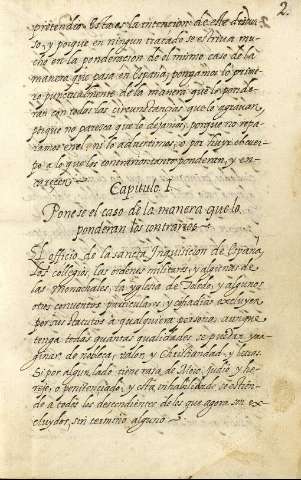 2.
pretendia. Esta es la intencion de este discur
so, y porque en ningun tratado se estriua mu
cho en la ponderacion de el mismo caso de la
manera que pasa en España, pongamoslo prime
ro puntualmente de la manera que lo ponde
ran con todas las circunstancias que lo agrauan,
porque no paresca que lo dejamos, porque no repa
damos en el, ni lo aduertimos, o por huyr el cuer
po a lo que los contrarios tanto ponderan, y en
carecen.
Capitulo. I.
Ponese el caso de la manera que lo
ponderan los contrarios.
El officio de la sancta Inquisicion de España,
los collegios, las ordenes militares, y algunas de
las Monachales, la yglesia de Toledo, y algunos
otros conuentos particulares, y cofradias excluyen
por sus statutos à qualquiera persona, aunque
tenga todas quantas qualidades se puedan yma
ginar de nobleça, valor, y Christiandad, y letras.
Si por algun lado tiene rasa de Moro, judio, y he
reje, o penitenciado, y esta inhabilidad se estien
de a todos los descendientes de los que agora son ex
cluydos, sin termino alguno.